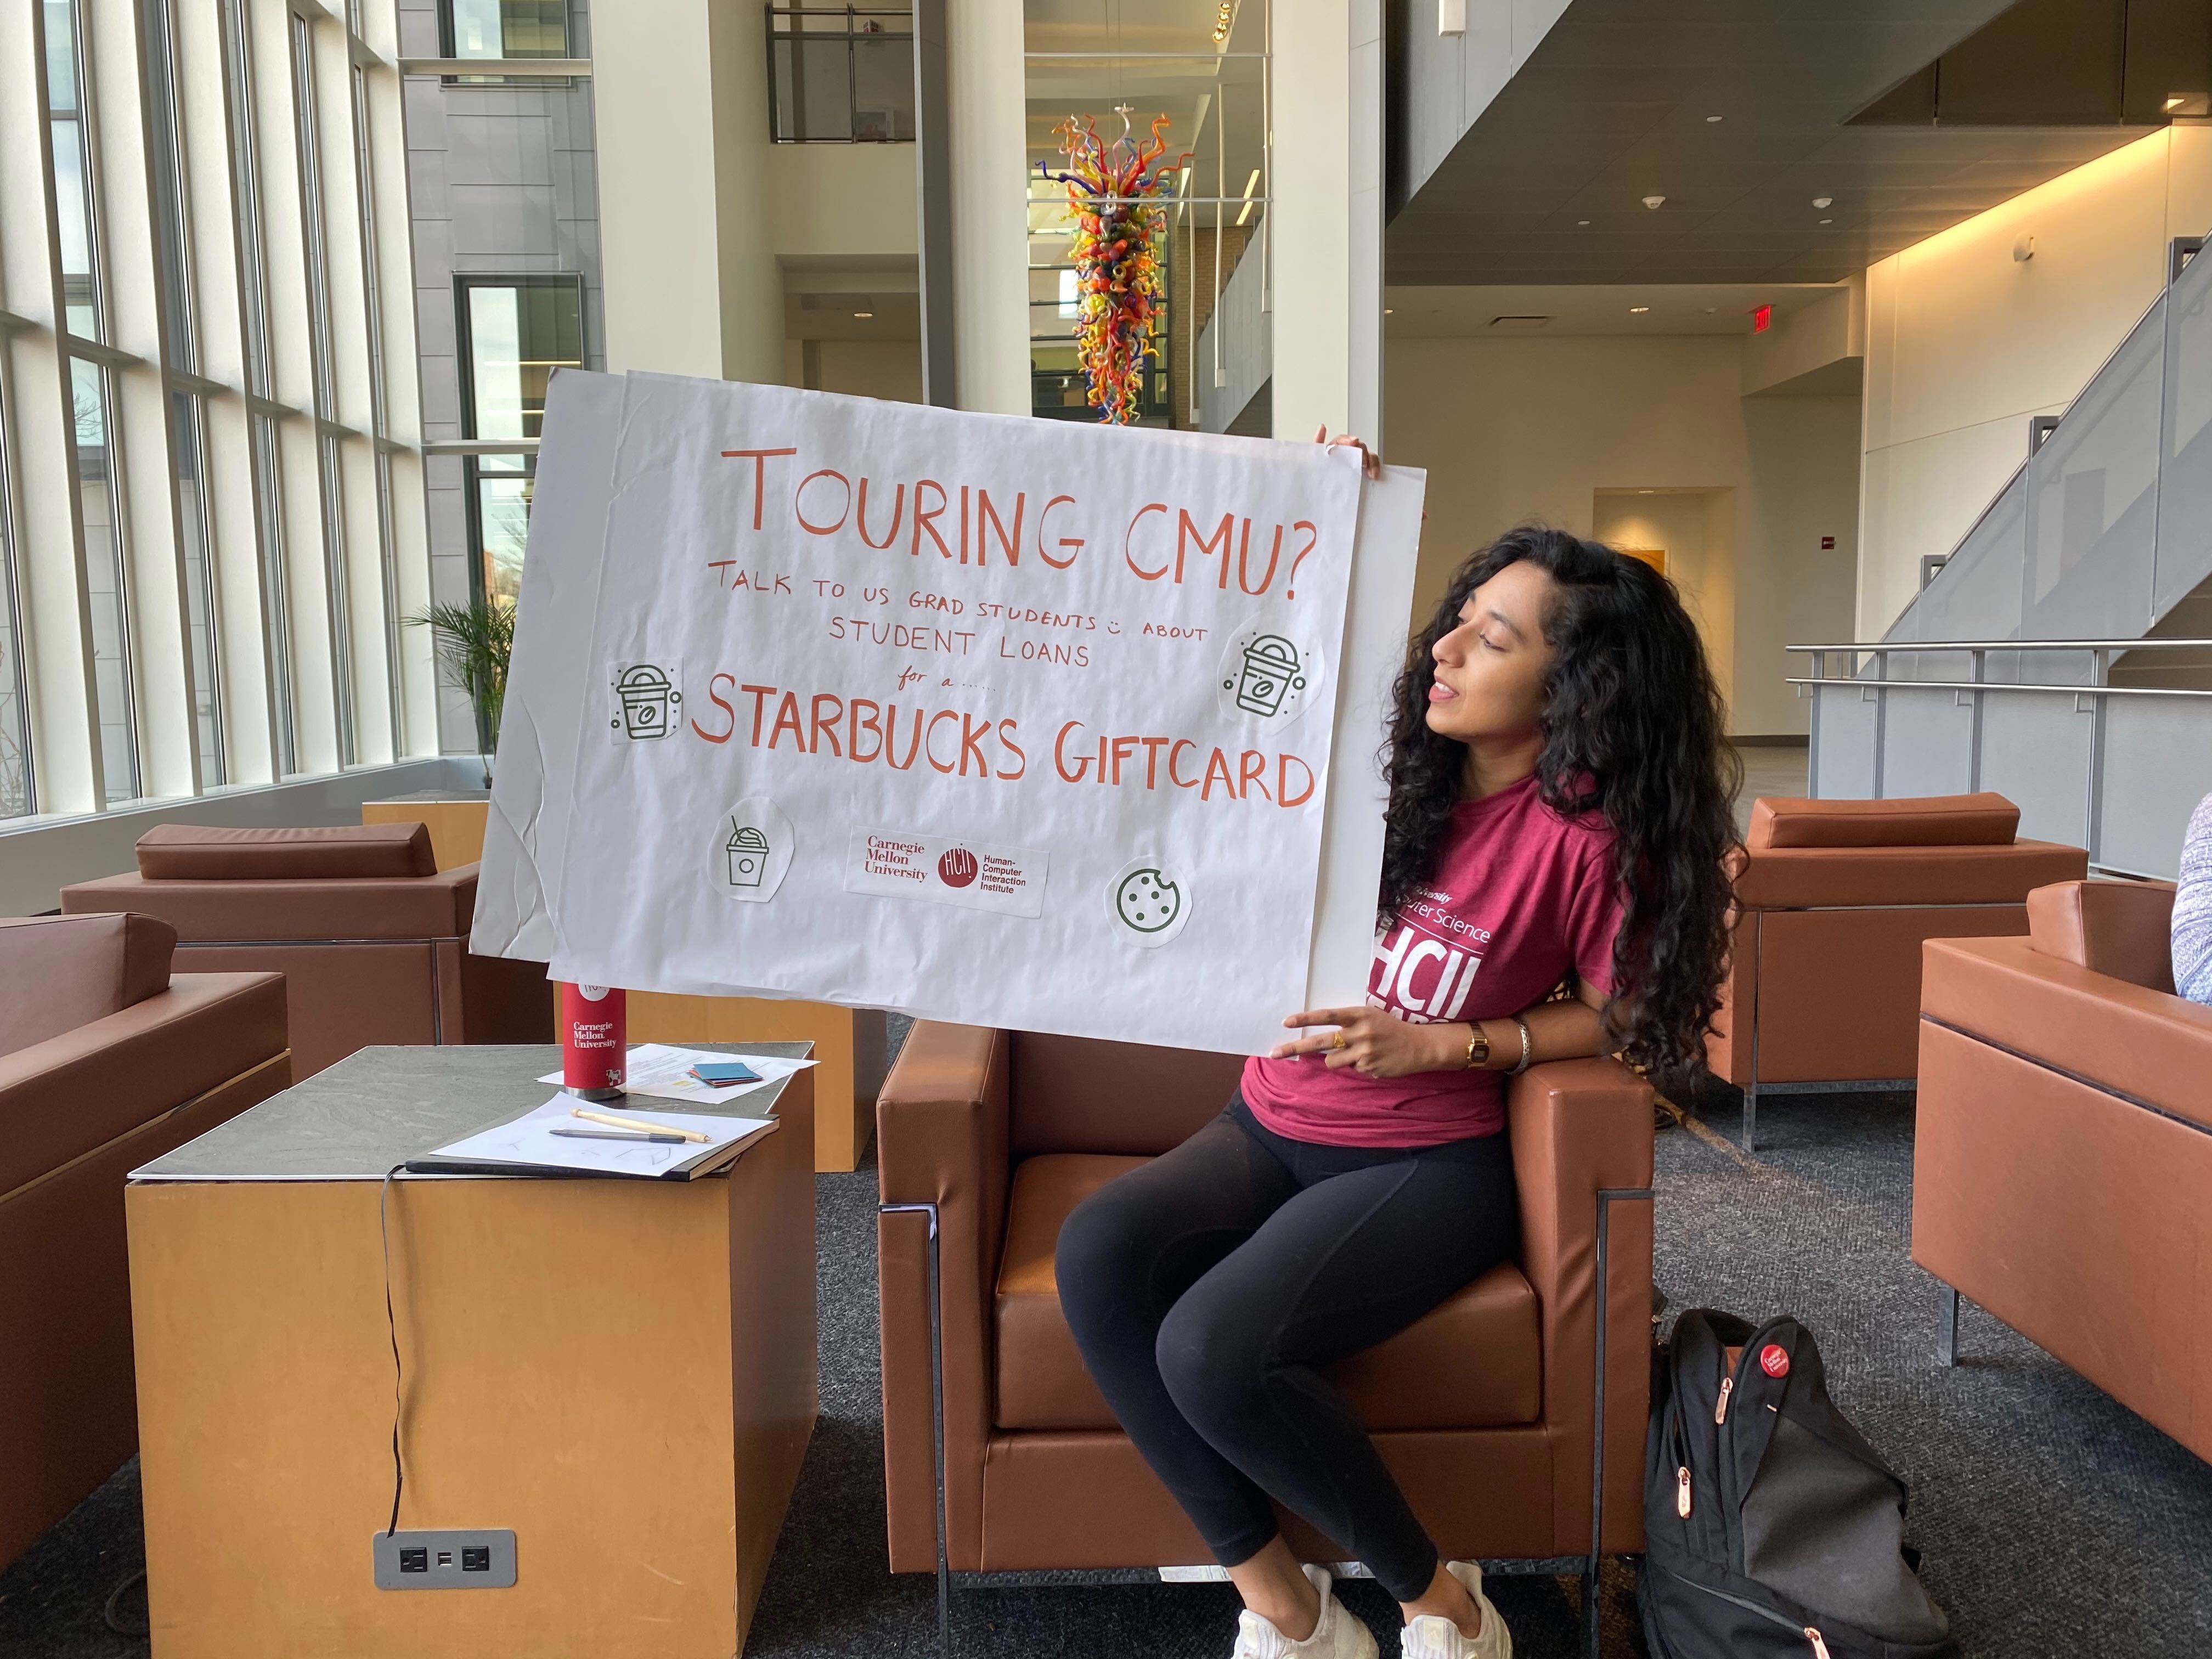 TOURING CMU?
TALK TO US GRAD STUDENTS :) ABOUT
STUDENT LOANS
for a ......
STARBUCKS GIFTCARD
Carnegie
Mellon
University
HCII
Human-
Computer
Interaction
Institute
Computer Science
HCII
Carnegie
Mellon
University
EXIT
Carnegie
Mellon
University